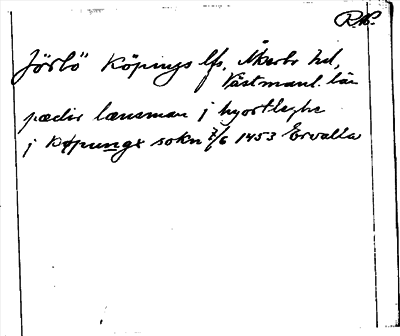 R.A.
Jörlö Köpings lfs, Åkerbo hd,
Västmanl. län
pædir lænsman j hyortløghe
j køpungx sokn 7/6 1453 Ervalla